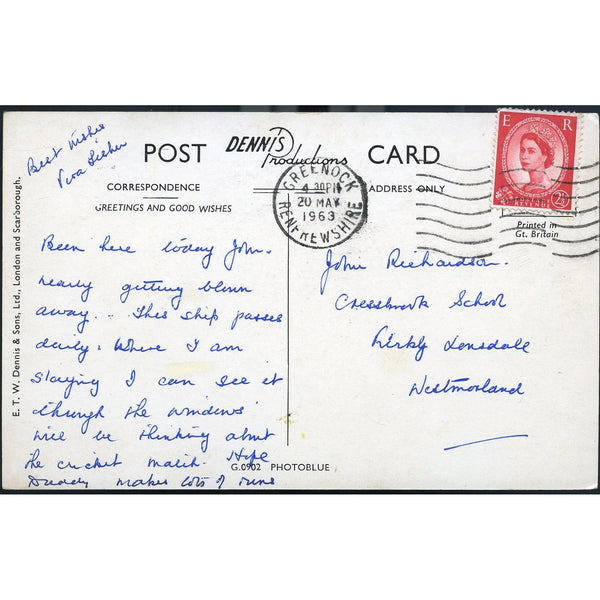 Best wishes
POST
DENNIS
Productions
CARD
CORRESPONDENCE
ADDRESS ONLY
GREETINGS AND GOOD WISHES
GREENOCK
4.30PM
20 MAY
1963
RENFREWSHIRE
E R
2½
Printed in
Gt. Britain
Been here today John.
nearly getting blown
away.. This ship passes
daily. Where I am
staying I can see it
through the windows
will be thinking about
the cricket match. Hope
Daddy makes lots of runs
John Richardson.
Cressbrook School
Kirkby Lonsdale
Westmorland
G.0902 PHOTOBLUE
E. T. W. Dennis & Sons, Ltd., London and Scarborough.